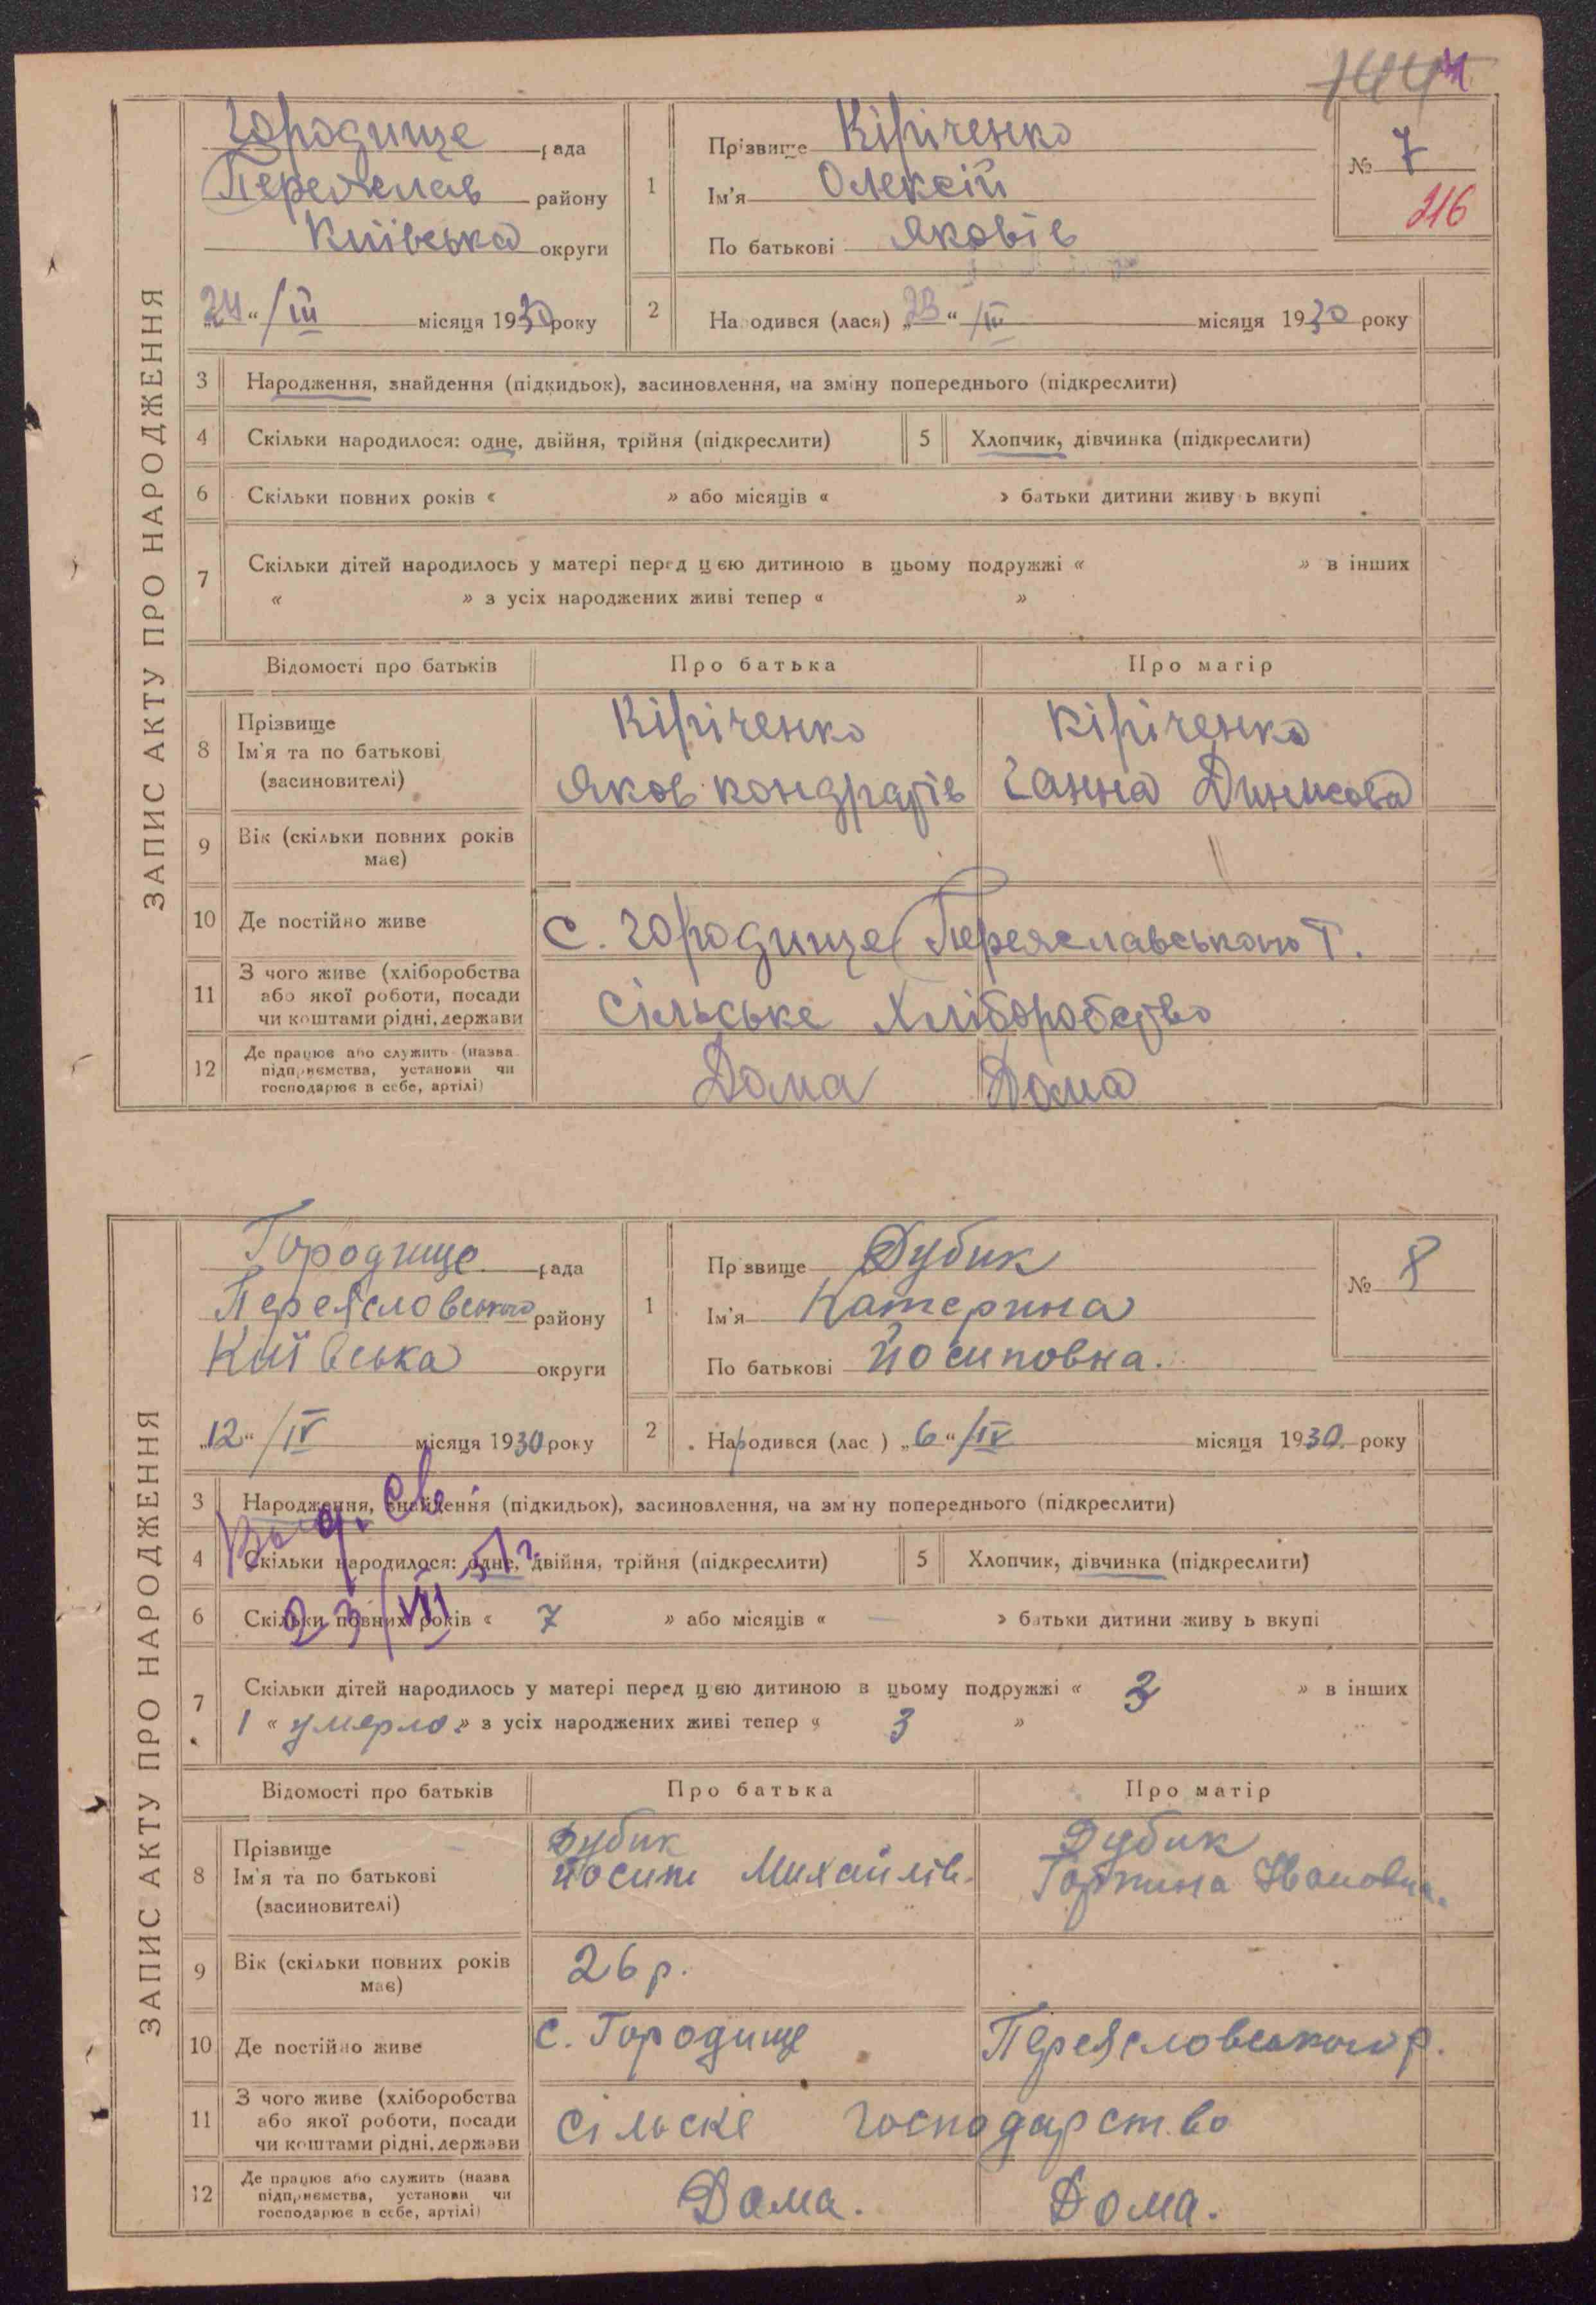 ЗАПИС АКТУ ПРО НАРОДЖЕННЯ
Городище рада
Переяслав району
Київська округи
"24" / III місяця 1930 року
1 Прізвище Кіріченко
Ім'я Олексій
По батькові Яковів
№ 7
216
2 Народився (лася) "23" / III місяця 1930 року
3 Народження, знайдення (підкидьок), засиновлення, на зміну попереднього (підкреслити)
4 Скільки народилося: одне, двійня, трійня (підкреслити) 5 Хлопчик, дівчинка (підкреслити)
6 Скільки повних років « » або місяців « » батьки дитини живуть вкупі
7 Скільки дітей народилось у матері перед цією дитиною в цьому подружжі « » в інших
« » з усіх народжених живі тепер « »
Відомості про батьків Про батька Про матір
8 Прізвище
Ім'я та по батькові
(засиновителі)
Кіріченко
Яков кондратів
Кіріченко
Ганна
9 Вік (скільки повних років
має)
10 Де постійно живе с. Городище Переяславського
11 З чого живе (хліборобства
або якої роботи, посади
чи коштами рідні, держави
Сільське Хліборобство
12 Де працює або служить (назва
підприємства, установи чи
господарює в себе, артілі)
Дома Дома
ЗАПИС АКТУ ПРО НАРОДЖЕННЯ
Городище рада
Переясловського району
Київська округи
"12" / IV місяця 1930 року
1 Прізвище Дубик
Ім'я Катерина
По батькові Йосиповна.
№ 8
2 Народився (лас ) "6" / IV місяця 1930. року
3 Народження, знайдення (підкидьок), засиновлення, на зміну попереднього (підкреслити)
4 Скільки народилося: одне, двійня, трійня (підкреслити) 5 Хлопчик, дівчинка (підкреслити)
6 Скільки повних років « 7 » або місяців « — » батьки дитини живуть вкупі
23/VII 51 г.
7 Скільки дітей народилось у матері перед цією дитиною в цьому подружжі « 3 » в інших
1 « умерло » з усіх народжених живі тепер « 3 »
Відомості про батьків Про батька Про матір
8 Прізвище
Ім'я та по батькові
(засиновителі)
Дубик
Йосип Михайлів.
Дубик
Горпина Івановна.
9 Вік (скільки повних років
має)
26 р.
10 Де постійно живе с. Городище Переясловського р.
11 З чого живе (хліборобства
або якої роботи, посади
чи коштами рідні, держави
Сільске господарство
12 Де працює або служить (назва
підприємства, установи чи
господарює в себе, артілі)
Дома. Дома.